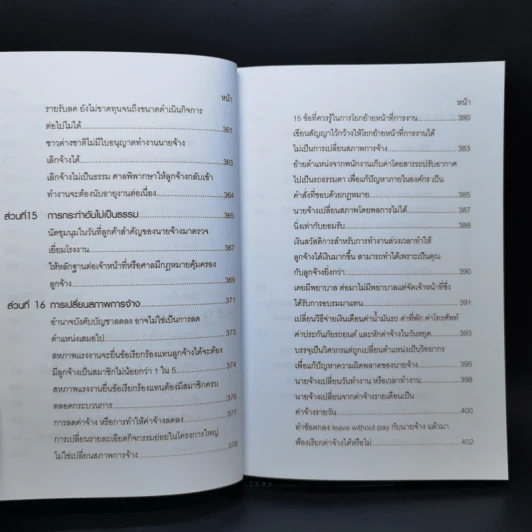 หน้า
รายรับลด ยังไม่ขาดทุนจนถึงขนาดดำเนินกิจการ
ต่อไปไม่ได้ 361
ชาวต่างชาติไม่มีใบอนุญาตทำงานนายจ้าง
เลิกจ้างได้ 363
เลิกจ้างไม่เป็นธรรม ศาลพิพากษาให้ลูกจ้างกลับเข้า
ทำงานจะต้องนับอายุงานต่อเนื่อง 364
ส่วนที่15 การกระทำอันไม่เป็นธรรม 365
นัดชุมนุมในวันที่ลูกค้าสำคัญของนายจ้างมาตรวจ
เยี่ยมโรงงาน 367
ให้หลักฐานต่อเจ้าหน้าที่หรือศาลมีกฎหมายคุ้มครอง
ลูกจ้าง 369
ส่วนที่ 16 การเปลี่ยนสภาพการจ้าง 371
อำนาจบังคับบัญชาลดลง อาจไม่ใช่เป็นการลด
ตำแหน่งเสมอไป 373
สหภาพแรงงานจะยื่นข้อเรียกร้องแทนลูกจ้างได้จะต้อง
มีลูกจ้างเป็นสมาชิกไม่น้อยกว่า 1 ใน 5 374
สหภาพแรงงานยื่นข้อเรียกร้องแทนต้องมีสมาชิกครบ
ตลอดกระบวนการ 376
การลดค่าจ้าง หรือการทำให้ค่าจ้างลดลง 377
การเปลี่ยนรายละเอียดกิจกรรมย่อยในโครงการใหญ่
ไม่ใช่เปลี่ยนสภาพการจ้าง 378
หน้า
15 ข้อที่ควรรู้ในการโยกย้ายหน้าที่การงาน 380
เขียนสัญญาไว้กว้างให้โยกย้ายหน้าที่การงานได้
ไม่เป็นการเปลี่ยนสภาพการจ้าง 383
ย้ายตำแหน่งจากพนักงานเก็บค่าโดยสารรถปรับอากาศ
ไปเป็นรถธรรมดา เพื่อแก้ปัญหาภายในองค์กร เป็น
คำสั่งที่ชอบด้วยกฎหมาย 385
นายจ้างเปลี่ยนสภาพโดยพลการไม่ได้ 387
นิ่งเท่ากับยอมรับ 388
เงินสวัสดิการสำหรับการทำงานล่วงเวลาทำให้
ลูกจ้างได้เงินมากขึ้น สามารถทำได้เพราะเป็นคุณ
กับลูกจ้างยิ่งกว่า 390
เคยมีพยาบาล ต่อมาไม่มีพยาบาลแต่จัดเจ้าหน้าที่ซึ่ง
ได้รับการอบรมมาแทน 391
เปลี่ยนวิธีจ่ายเงินเดือนค่าน้ำมันรถ ค่าที่พัก ค่าโทรศัพท์
ค่าประกันภัยรถยนต์ และหักค่าจ้างในวันหยุด 393
บรรจุเป็นวิศวกรแต่ถูกเปลี่ยนตำแหน่งเป็นวิทยากร
เพื่อแก้ปัญหาความผิดพลาดของนายจ้าง 395
นายจ้างเปลี่ยนวันทำงาน หรือเวลาทำงาน 398
นายจ้างเปลี่ยนจากค่าจ้างรายเดือนเป็น
ค่าจ้างรายวัน 400
ทำข้อตกลง leave without pay กับนายจ้าง แล้วมา
ฟ้องเรียกค่าจ้างได้หรือไม่ 402